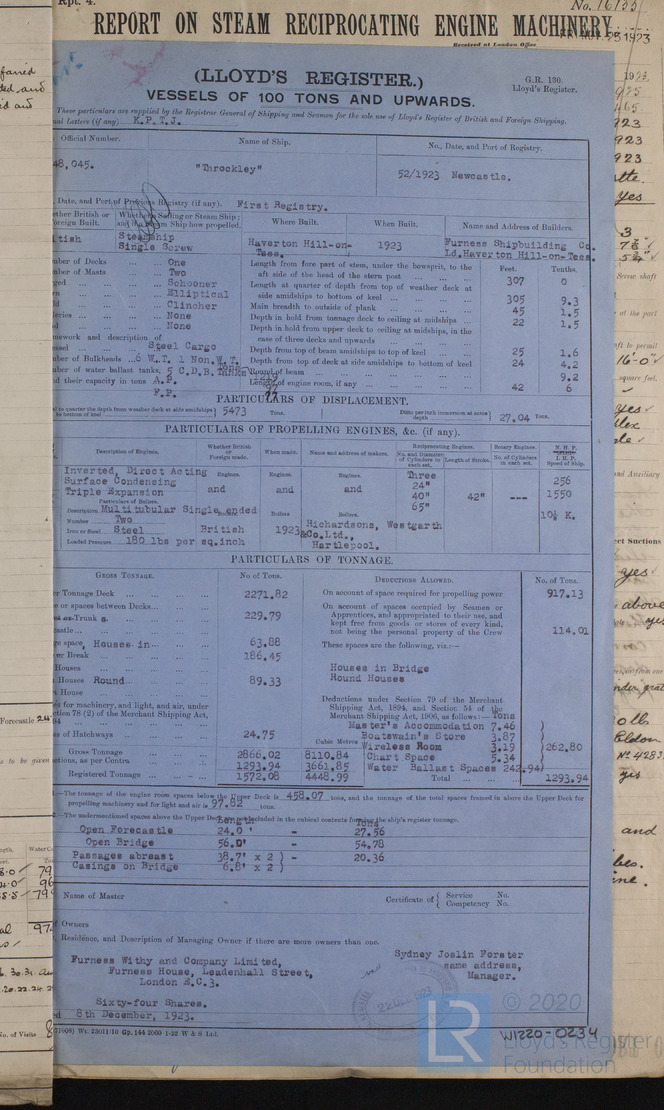 Rpt. 4.
No. 16133
REPORT ON STEAM RECIPROCATING ENGINE MACHINERY.
Received at London Office
(LLOYD'S REGISTER.)
G.R. 130.
Lloyd's Register.
VESSELS OF 100 TONS AND UPWARDS.
These particulars are supplied by the Registrar General of Shipping and Seamen for the sole use of Lloyd's Register of British and Foreign Shipping.
Letters (if any) K.P.T.J.
Official Number.
Name of Ship.
No., Date, and Port of Registry.
48,045.
"Throckley"
52/1923 Newcastle.
Date, and Port of Previous Registry (if any). First Registry.
Whether British or Foreign Built.
Whether Sailing or Steam Ship; and if Steam Ship how propelled.
Where Built.
When Built.
Name and Address of Builders.
Steamship
Single Screw
Haverton Hill-on-Tees.
1923
Furness Shipbuilding Co. Ld. Haverton Hill-on-Tees.
Number of Decks One
Number of Masts Two
Schooner
Elliptical
Clincher
None
None
Steel Cargo
Number of Bulkheads 6 W.T. 1 Non.W.T.
Number of water ballast tanks, 5 C.D.B. Tanks
and their capacity in tons A.P.
F.P.
Feet. Tenths.
Length from fore part of stem, under the bowsprit, to the aft side of the head of the stern post 307 0
Length at quarter of depth from top of weather deck at side amidships to bottom of keel 305 9.3
Main breadth to outside of plank 45 1.5
Depth in hold from tonnage deck to ceiling at midships 22 1.5
Depth in hold from upper deck to ceiling at midships, in the case of three decks and upwards
Depth from top of beam amidships to top of keel 25 1.6
Depth from top of deck at side amidships to bottom of keel 24 4.2
Round of beam 9.2
Length of engine room, if any 42 6
PARTICULARS OF DISPLACEMENT.
to quarter the depth from weather deck at side amidships to bottom of keel 5473 Tons.
Ditto per inch immersion at same depth 27.04 Tons.
PARTICULARS OF PROPELLING ENGINES, &c. (if any).
Description of Engines.
Whether British or Foreign made.
When made.
Name and address of makers.
Reciprocating Engines.
No. and Diameter of Cylinders in each set.
Length of Stroke.
Rotary Engines.
No. of Cylinders in each set.
N.H.P.
I.H.P.
Speed of Ship.
Inverted, Direct Acting
Surface Condensing
Triple Expansion
Engines. and
Engines. and
Engines. and
Three
24"
40"
65"
42"
---
256
1550
10½ K.
Particulars of Boilers.
Description Multitubular Single ended
Number Two
Iron or Steel Steel
Loaded Pressure 180 lbs per sq.inch
British
Boilers 1923
Boilers.
Richardsons, Westgarth
&Co.Ltd.,
Hartlepool.
PARTICULARS OF TONNAGE.
GROSS TONNAGE.
No of Tons.
DEDUCTIONS ALLOWED.
No. of Tons.
Tonnage Deck 2271.82
or spaces between Decks
Trunk 229.79
Houses in 63.88
or Break 186.45
Houses
Houses Round 89.33
House
for machinery, and light, and air, under
Section 78 (2) of the Merchant Shipping Act,
of Hatchways 24.75
Cubic Metres
Gross Tonnage 2866.02 8110.84
Deductions, as per Contra 1293.94 3661.85
Registered Tonnage 1572.08 4448.99
On account of space required for propelling power 917.13
On account of spaces occupied by Seamen or Apprentices, and appropriated to their use, and kept free from goods or stores of every kind, not being the personal property of the Crew 114.01
These spaces are the following, viz.:—
Houses in Bridge
Round Houses
Deductions under Section 79 of the Merchant Shipping Act, 1894, and Section 54 of the Merchant Shipping Act, 1906, as follows:— Tons
Master's Accommodation 7.46
Boatswain's Store 3.87
Wireless Room 3.19
Chart Space 5.34
Water Ballast Spaces 242.94
262.80
Total 1293.94
—The tonnage of the engine room spaces below the Upper Deck is 458.07 tons, and the tonnage of the total spaces framed in above the Upper Deck for propelling machinery and for light and air is 97.82 tons.
—The undermentioned spaces above the Upper Deck are not included in the cubical contents forming the ship's register tonnage.
Length. Tons.
Open Forecastle 24.0' - 27.56
Open Bridge 56.0' - 54.78
Passages abreast 38.7' x 2 ) - 20.36
Casings on Bridge 6.8' x 2 )
Name of Master
Certificate of { Service No.
Competency No.
Owners
Residence, and Description of Managing Owner if there are more owners than one.
Furness Withy and Company Limited,
Furness House, Leadenhall Street,
London E.C.3.
Sydney Joslin Forster
same address,
Manager.
Sixty-four Shares.
8th December, 1923.
22 DEC 1923
Wt. 25011/10 Gp. 144 2000 1-22 W & S Ltd.
W1220-0234
LR
© 2020
Lloyd's Register
Foundation